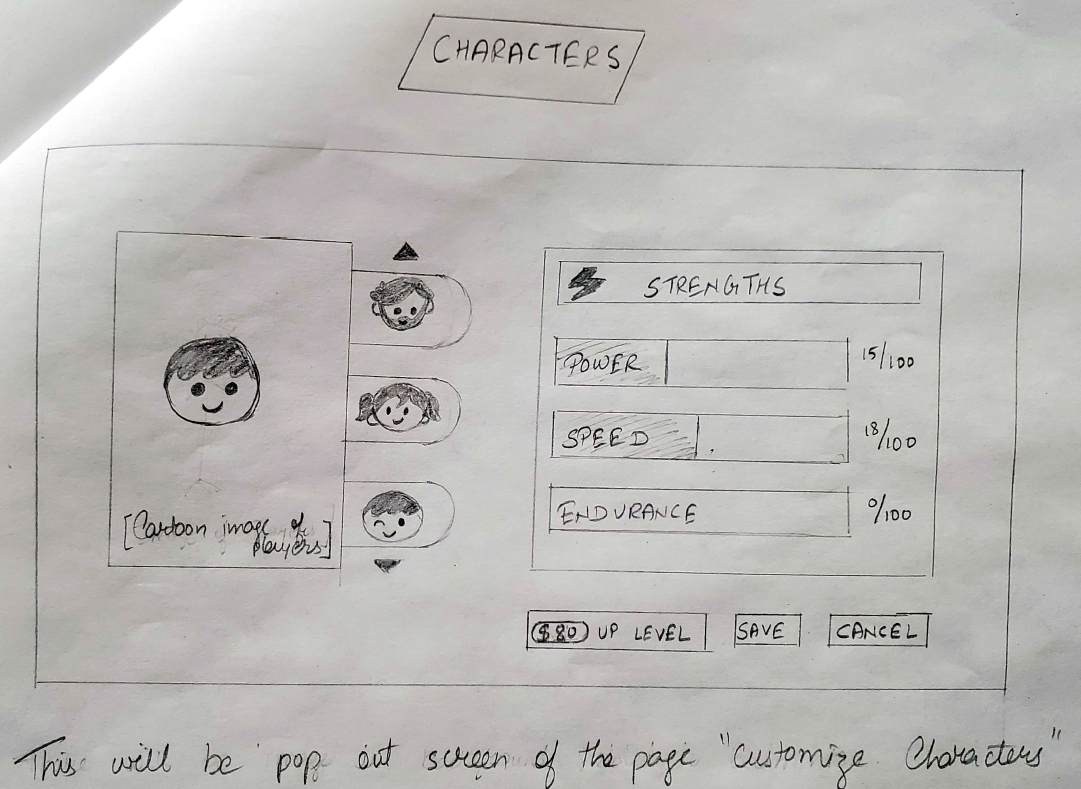 CHARACTERS
[Cartoon image of
players]
STRENGTHS
POWER 15/100
SPEED 18/100
ENDURANCE 0/100
$80 UP LEVEL SAVE CANCEL
This will be pop out screen of the page "Customize Characters"